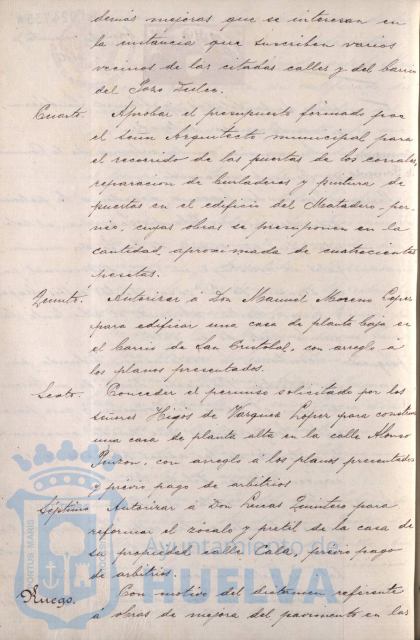 demás mejoras que se interesan en
la instancia que suscriben varios
vecinos de las citadas calles y del barrio
del
Cuarto. Aprobar el presupuesto formado por
el señor Arquitecto municipal para
el recorrido de las puertas de los corrales,
reparacion de burladeros y pintura de
puertas en el edificio del Matadero,
cuyas obras se presuponen en la
cantidad aproximada de cuatrocientas
pesetas.
Quinto. Autorizar á Don Manuel Moreno Lopez
para edificar una casa de planta baja en
el barrio de San Cristobal, con arreglo á
los planos presentados.
Sexto. Conceder el permiso solicitado por los
señores Hijos de Vazquez Lopez para construir
una casa de planta alta en la calle Alonso
Pinzon, con arreglo á los planos presentados
y previo pago de arbitrios
Séptimo Autorizar á Don Lucas Quintero para
reformar el zócalo y pretil de la casa de
su propiedad calle Cala, previo pago
de arbitrios.
Ruego. Con motivo del dictamen referente
á obras de mejora del pavimento en las
Ayuntamiento de
HUELVA